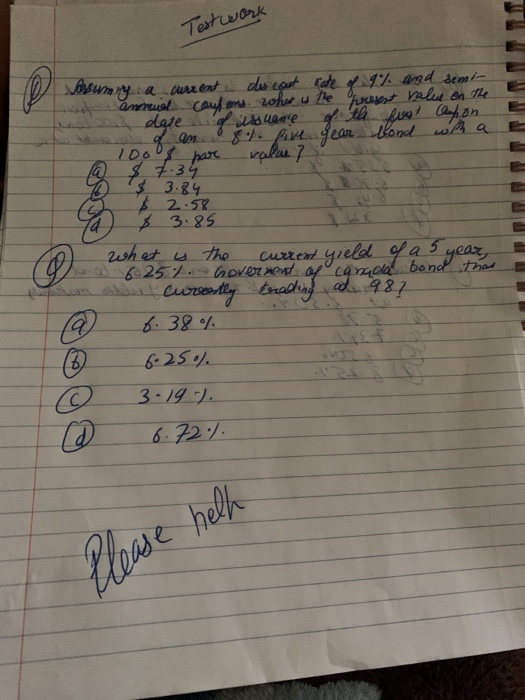 Test work
Q Assuming a current discount rate of 9% and semi-
annual coupons what is the present value on the
date of issuance of the first coupon
of an 8% five year bond with a
100 $ par value?
a $ 7.34
b $ 3.84
c $ 2.58
d $ 3.85
Q What is the current yield of a 5 year,
6.25%. Goverment of canada bond that
currently trading at 98?
a 6.38%.
b 6.25%.
c 3.19%.
d 6.72%.
Please help